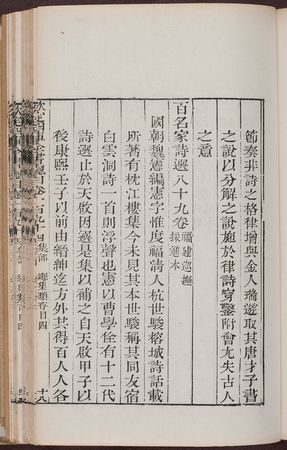 節奏非詩之格律增與金人瑞遊取其唐才子書
之說以分解之說施於律詩穿鑿附會尤失古人
之意
百名家詩選八十九卷 福建巡撫採進本
國朝魏憲編憲字惟度福清人杭世駿榕城詩話載
所著有枕江樓集今未見其本世駿稱其同友宿
白雲洞詩一首則浮聲也憲以曹學佺有十二代
詩選止於天啟因選是集以補之自天啟甲子以
後康熙壬子以前由縉紳迄方外共得百人人各
欽定四庫全書總目卷一百九十四 集部 總集類存目四 十八